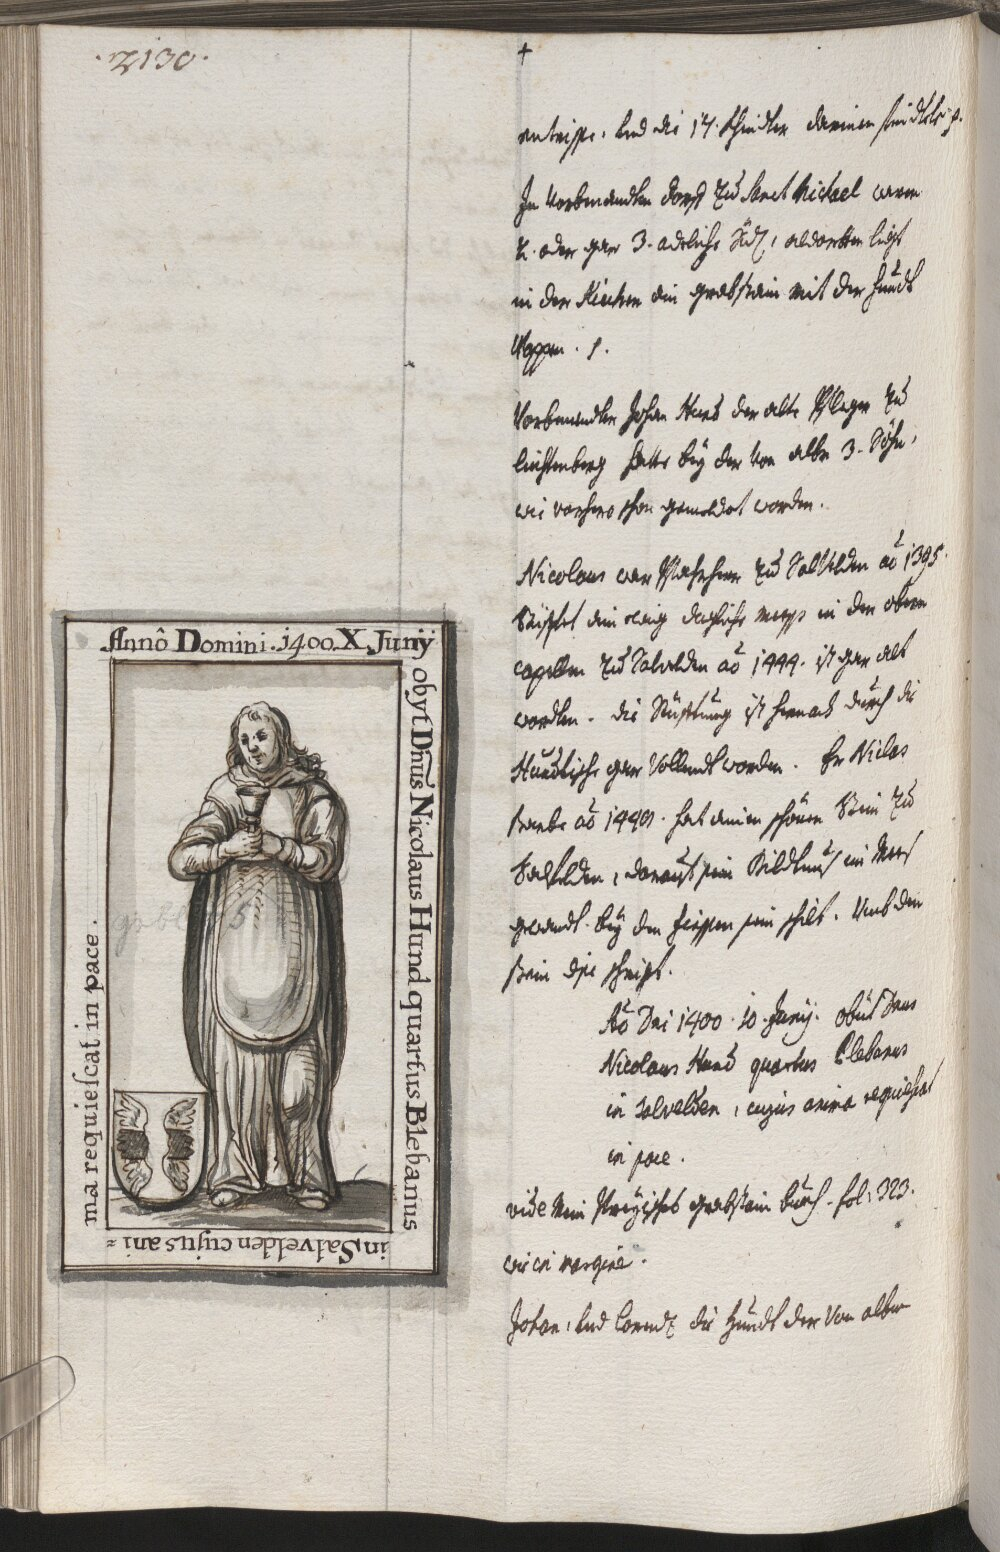 . 2130 .
+
entrissr. Und die 14. Khindler darinen
In Vorbenandten Dorff zu Sanct Michael waren
2. oder gar 3. adeliche Siz, aldortten ligt
in der Kirchen ein grabstain mit der Hundt
Wappen . p.
Vorbenandter Johan Hund der alte Pfleger zu
Liechtenberg hatte bey der Von Albm 3. Söhn,
wie vorhero schon gemeldet worden.
Nicolaus war Pfahrherr zu Salfelden aõ 1395.
Stifftet ein ewig dägliche mess in der obern
capellen zu Salvelden aõ 1444. ist gar alt
worden. die Stüfftung ist hernach durch die
Hundtische gar Vollendt worden. Er Niclas
starbe aõ 1440. hat einen schönen Stein zu
Salfelden, darauf sein Bildtnus im Mess
gwandt. bey den fiessen sein schilt. Umb den
stein die schrifft.
Aõ Dni 1400. 10. Junij. obiit Dnus
Nicolaus Hund quartus Plebanus
in Salvelden, cujus anima requiescat
in pace.
vide Mein grabstain buech. fol: 323.
wie in margine.
Johan, Und Lorenz die Hundt der Von Albm
Annô Domini. 1400. X. Junij
obyt Dnũs Nicolaus Hund quartus Blebanius
in Salvelden cujus ani=
ma requiescat in pace.